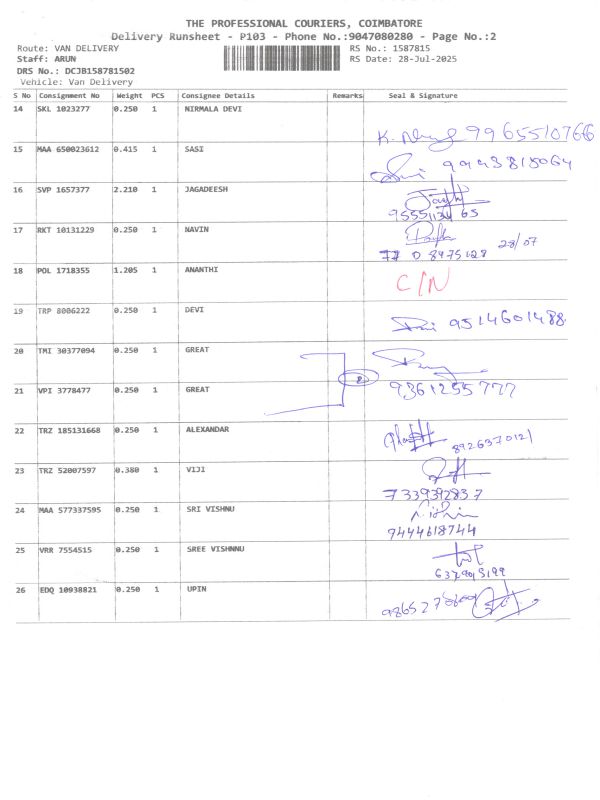 THE PROFESSIONAL COURIERS, COIMBATORE
Delivery Runsheet - P103 - Phone No.:9047080280 - Page No.:2
Route: VAN DELIVERY RS No.: 1587815
Staff: ARUN RS Date: 28-Jul-2025
DRS No.: DCJB158781502
Vehicle: Van Delivery
S No Consignment No Weight PCS Consignee Details Remarks Seal & Signature
14 SKL 1023277 0.250 1 NIRMALA DEVI
9965510766
15 MAA 650023612 0.415 1 SASI
9943818064
16 SVP 1657377 2.210 1 JAGADEESH
17 RKT 10131229 0.250 1 NAVIN
28/07
18 POL 1718355 1.205 1 ANANTHI
C/N
19 TRP 8006222 0.250 1 DEVI
9514601488
20 TMI 30377094 0.250 1 GREAT
2
21 VPI 3778477 0.250 1 GREAT
9361255777
22 TRZ 185131668 0.250 1 ALEXANDAR
8926370121
23 TRZ 52007597 0.380 1 VIJI
7339392837
24 MAA 577337595 0.250 1 SRI VISHNU
9444618744
25 VRR 7554515 0.250 1 SREE VISHNNU
26 EDQ 10938821 0.250 1 UPIN